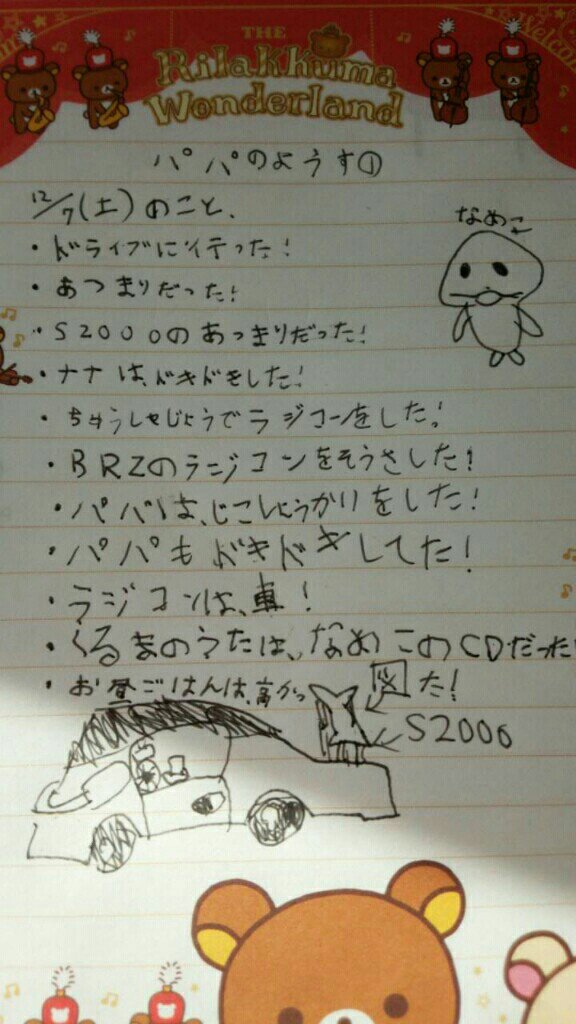 THE
Rilakkuma
Wonderland
Welcom
パパのようす①
12/7(土)のこと、
・ドライブにイテった!
・あつまりだった!
・S2000のあつまりだった!
・ナナは、ドキドキした!
・ちゅうしゃじょうでラジコンをした!
・BRZのラジコンをそうさした!
・パパは、じこしょうかいをした!
・パパもドキドキしてた!
・ラジコンは、車!
・くるまのうたは、なめこのCDだった!
・お昼ごはんは、高かっ図た!
なめこ
S2000